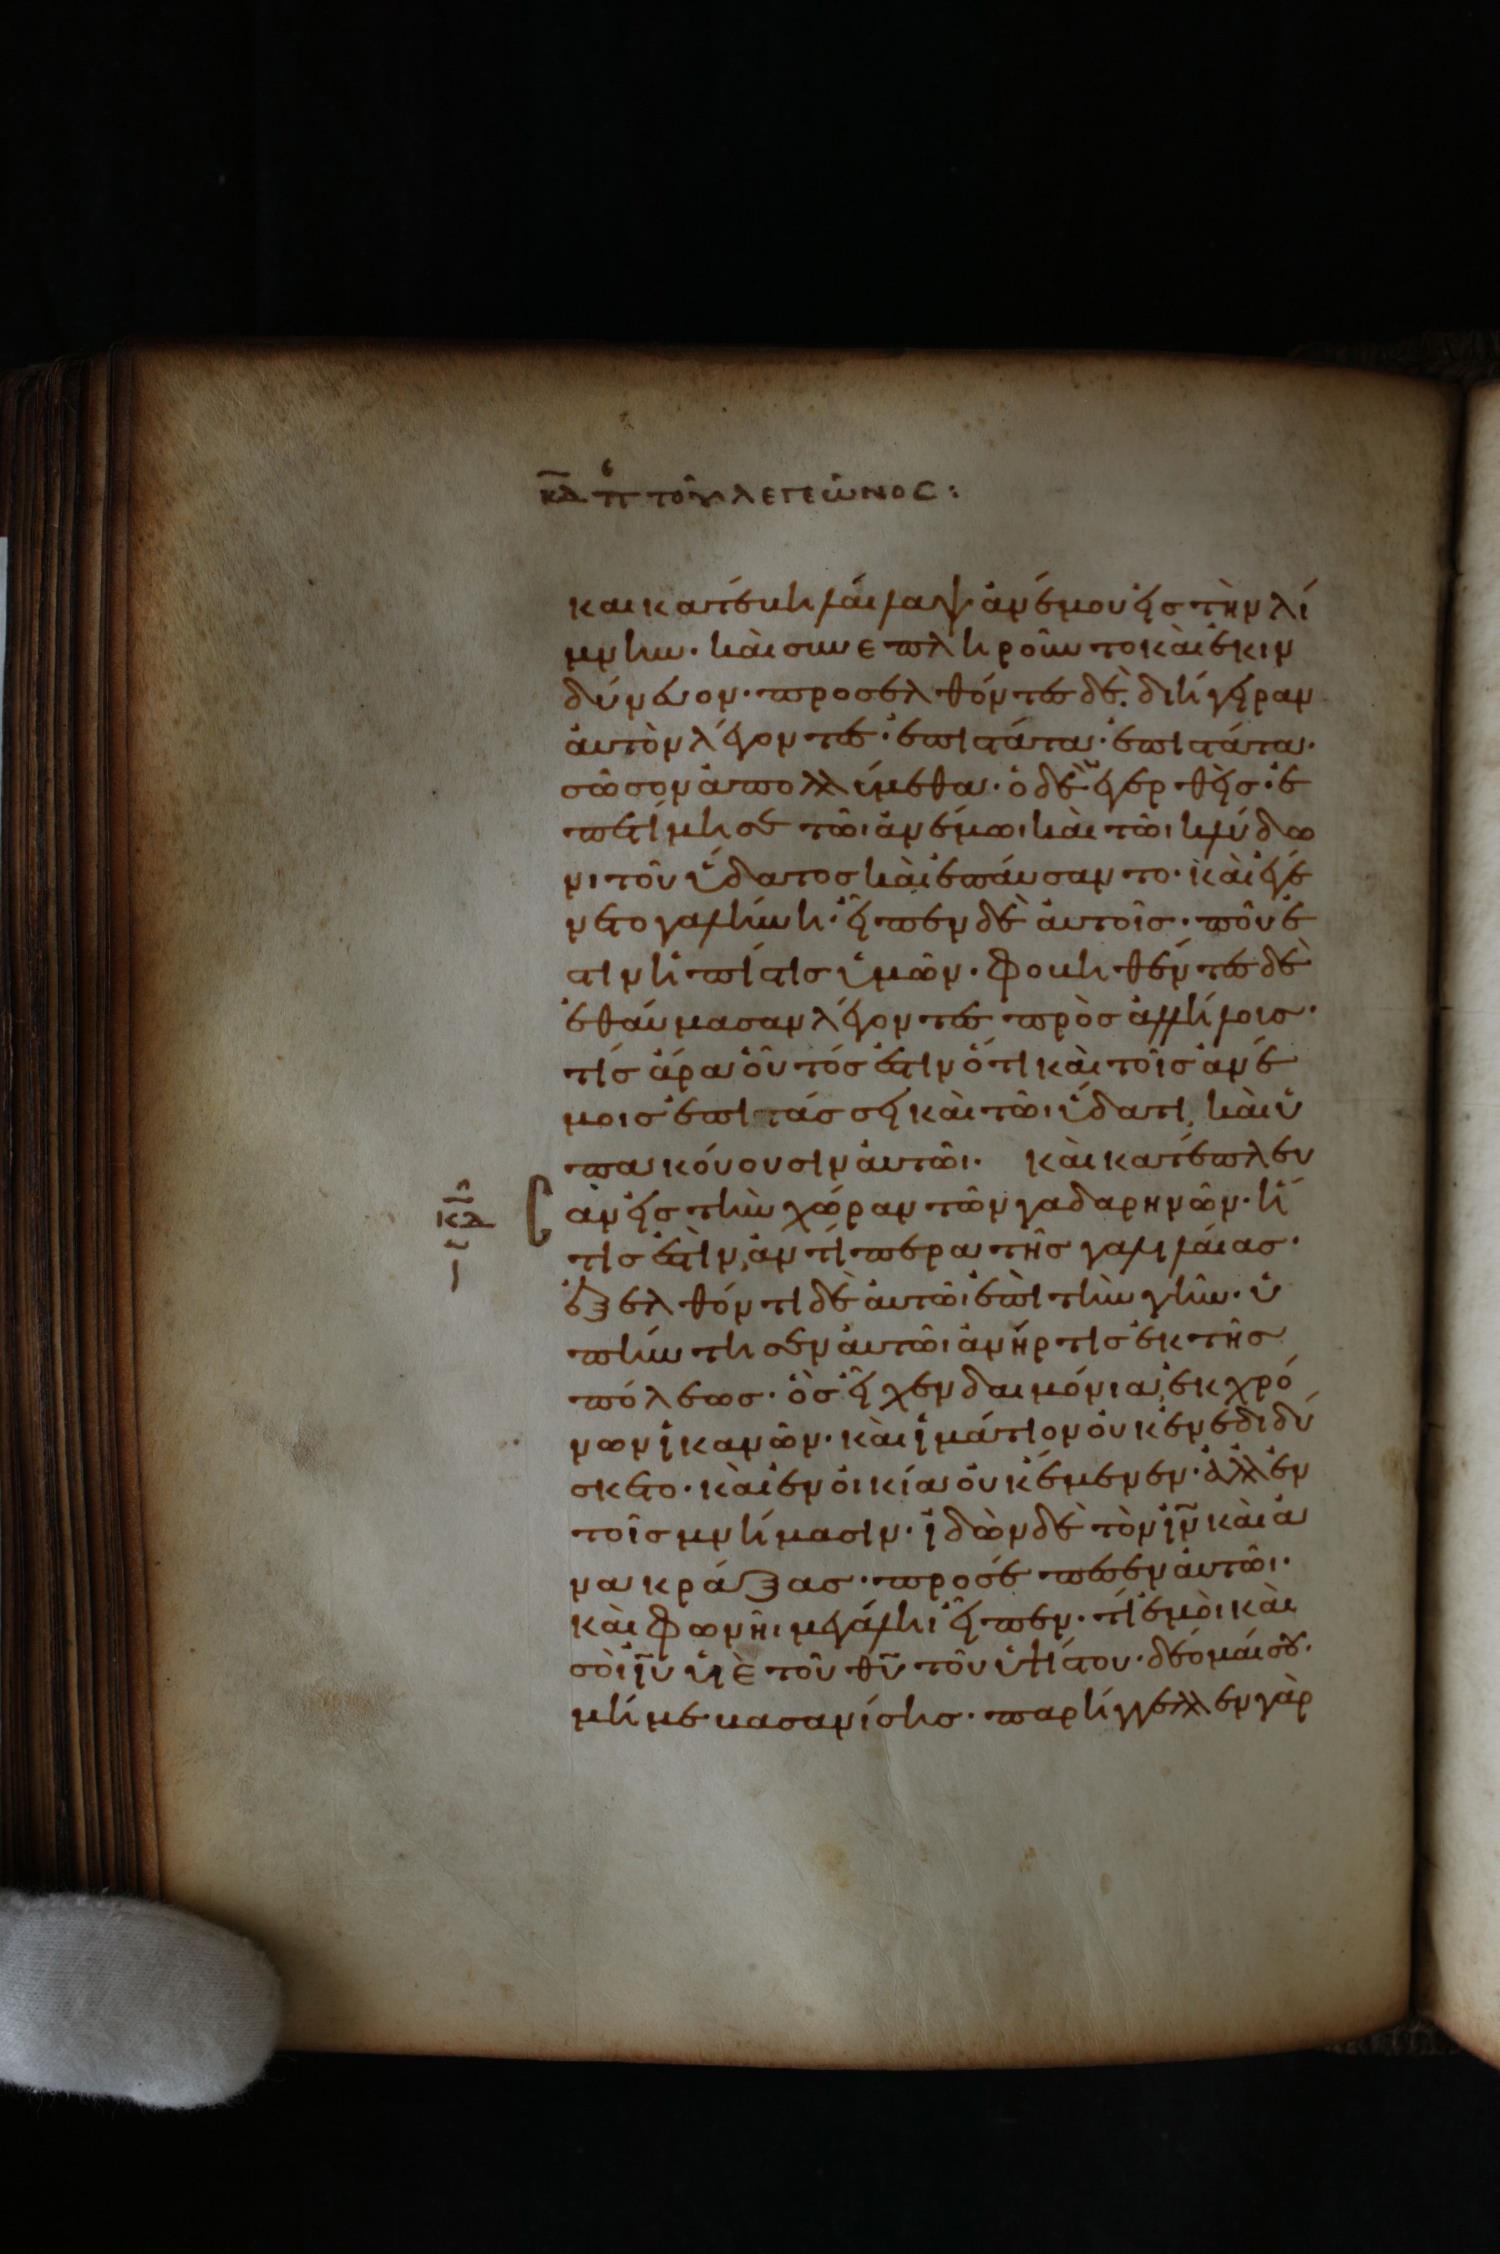 κδ π̔ τοῦ λεγεῶνος:
και κατέβη λαίλαψ ἀνέμου εἰς τὴν λί
μνην· καὶ συνεπληροῦντο καὶ ἐκιν
δύνευον· προσελθόντες δὲ διήγειραν
ἀυτὸν λέγοντες· ἐπιστάτα· ἐπιστάτα·
σῶσον ἀπολλύμεθα· ὁ δὲ ἐγερθεὶς· ἐ
πετίμησε τῶι ἀνέμωι καὶ τῶι κλύδω
νι τοῦ ὕδατος καὶ ἐπάυσαντο· καὶ ἐγέ
νετο γαλήνη· εἶπεν δὲ ἀυτοῖς· ποῦ ἐ
στιν ἡ πίστις ὑμῶν· φοβηθέντες δὲ
ἐθάυμασαν λέγοντες πρὸς ἀλλήλοις·
τίς ἄρα ὁῦτός ἐστιν ὅτι καὶ τοῖς ἀνέ
μοις ἐπιτάσσει καὶ τῶι ὕδατι, καὶ ὑ
πακόυουσιν ἀυτῶι· καὶ κατέπλευ
κδ
σαν εἰς τὴν χώραν τῶν γαδαρηνῶν· ἥ
τις ἐστὶν, ἀντίπερα τῆς γαλιλάιας·
ἐξελθόντι δὲ ἀυτῶι ἐπὶ τὴν γῆν· ὑ
πήντησεν ἀυτῶι ἀνήρ τις ἐκ τῆς
πόλεως· ὃς εἶχεν δαιμόνια, ἐκ χρό
νων ἱκανῶν· καὶ ἱμάτιον ὀυκ ἐνεδιδύ
σκετο· καὶ ἐν ὀικία ὀυκ ἔμενεν· ἀλλ' ἐν
τοῖς μνήμασιν· ἰδὼν δὲ τὸν ἰν καὶ ἀ
νακράξας· προσέπεσεν ἀυτῶι·
καὶ φωνῆι μεγάληι εἶπεν· τί ἐμὸι καὶ
σὸι ἰυ υἱὲ τοῦ θυ τοῦ ὑψίστου· δέομάι σου·
μή με βασανίσης· παρήγγελλεν γὰρ